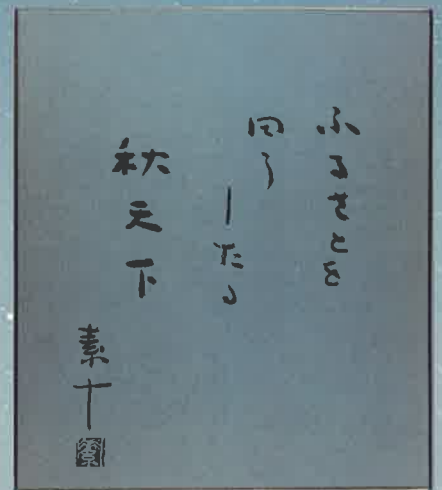 ふるさとを
同う
したる
秋天下
素十